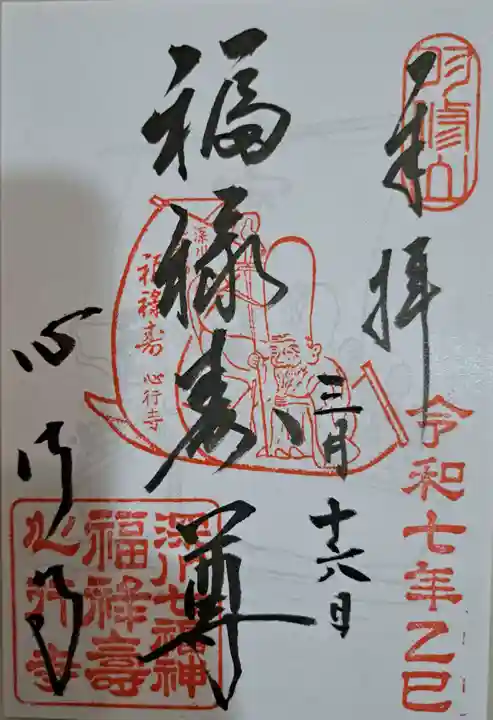 奉拝
令和七年乙巳
三月十六日
福禄寿尊
深川
福禄寿
心行寺
心行寺
深川七福神
福禄壽
心行寺